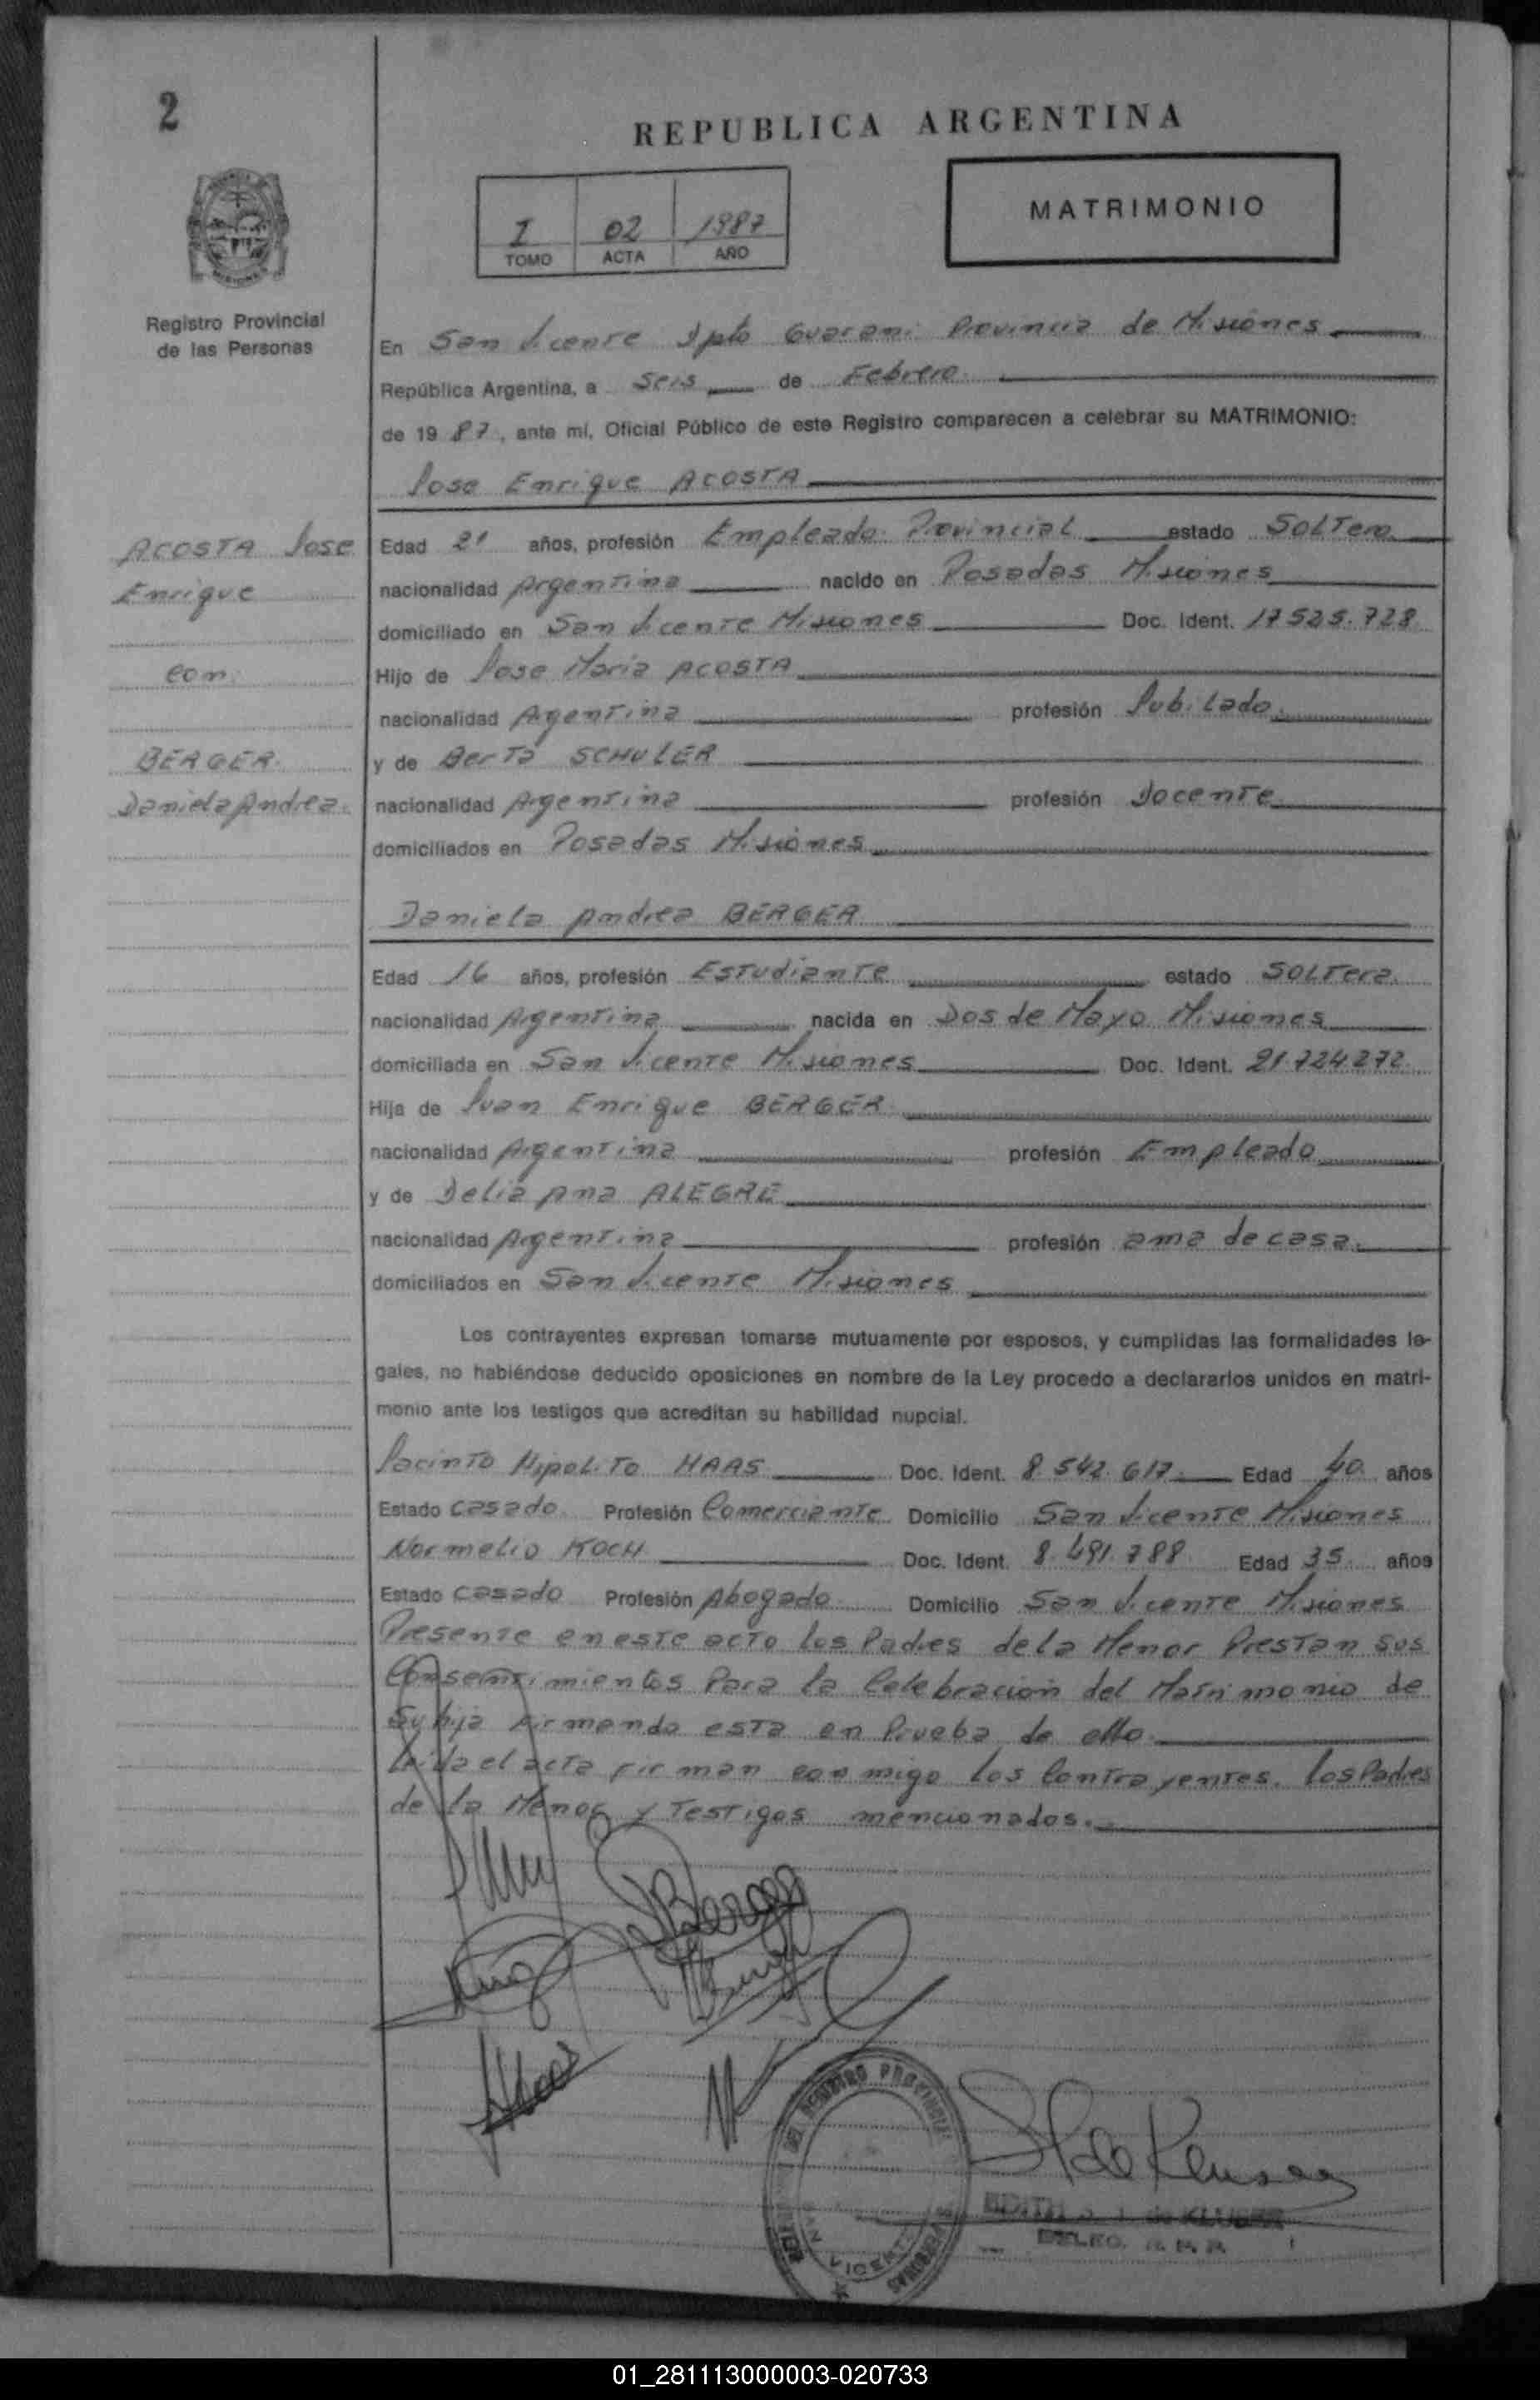 2
REPUBLICA ARGENTINA
MATRIMONIO
I 02 1987
TOMO ACTA AÑO
Registro Provincial
de las Personas
En San Vicente Dpto Guarani Provincia de Misiones
República Argentina, a Seis de Febrero
de 1987, ante mí, Oficial Público de este Registro comparecen a celebrar su MATRIMONIO:
Jose Enrique ACOSTA
ACOSTA Jose
Enrique
con
BERGER
Daniela Andrea
Edad 21 años, profesión Empleado Provincial estado Soltero
nacionalidad Argentina nacido en Posadas Misiones
domiciliado en San Vicente Misiones Doc. Ident. 17 525.728
Hijo de Jose Maria ACOSTA
nacionalidad Argentina profesión Jubilado
y de Berta SCHULER
nacionalidad Argentina profesión Docente
domiciliados en Posadas Misiones
Daniela Andrea BERGER
Edad 16 años, profesión Estudiante estado Soltera
nacionalidad Argentina nacida en Dos de Mayo Misiones
domiciliada en San Vicente Misiones Doc. Ident. 21.724.272
Hija de Juan Enrique BERGER
nacionalidad Argentina profesión Empleado
y de Delia Ana ALEGRE
nacionalidad Argentina profesión ama de casa
domiciliados en San Vicente Misiones
Los contrayentes expresan tomarse mutuamente por esposos, y cumplidas las formalidades le-
gales, no habiéndose deducido oposiciones en nombre de la Ley procedo a declararlos unidos en matri-
monio ante los testigos que acreditan su habilidad nupcial.
Jacinto Hipolito HAAS Doc. Ident. 8.542.617 Edad 40 años
Estado casado Profesión Comerciante Domicilio San Vicente Misiones
Normelio KOCH Doc. Ident. 8.491.788 Edad 35 años
Estado casado Profesión Abogado Domicilio San Vicente Misiones
Presente en este acto los Padres de la Menor Prestan sus
Consentimientos Para la Celebracion del Matrimonio de
Su hija Firmando esta en Prueba de ello.
Leida el acta Firman conmigo los Contrayentes, los Padres
de la Menor y Testigos mencionados.
Berger
DEL REGISTRO PROVINCIAL
PERSONAS
SAN VICENTE
EDITH de KLUSER
DELEG. R. P. P.
01_281113000003-020733